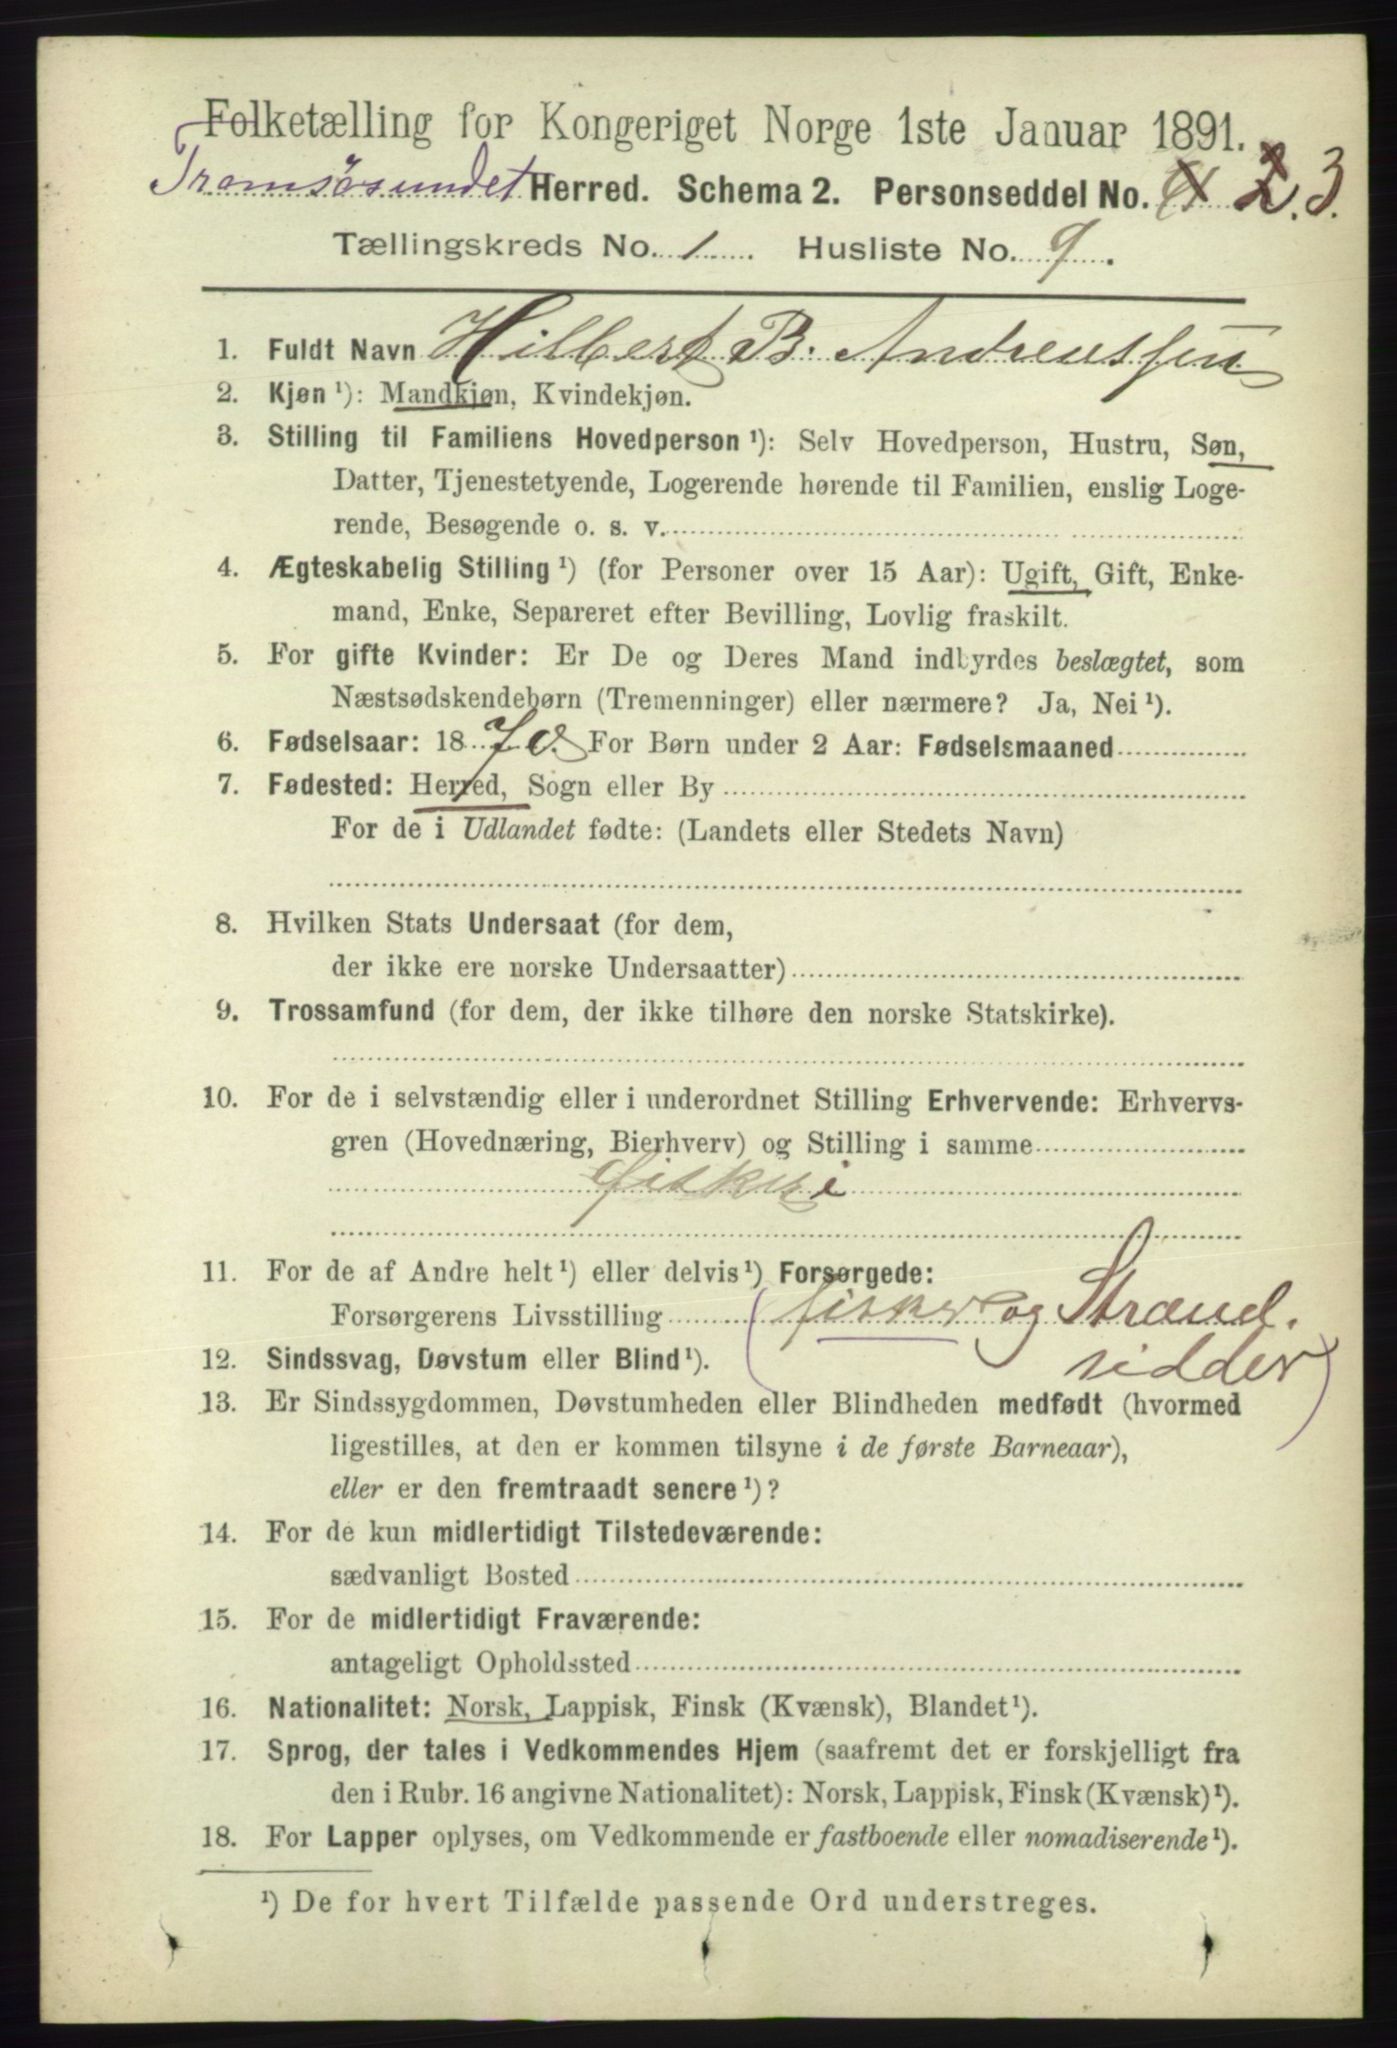 Folketælling for Kongeriget Norge 1ste Januar 1891.
Tromsøsundet Herred. Schema 2. Personseddel No. 2. 3.
Tællingskreds No. 1 Husliste No. 9.
1. Fuldt Navn Hilbert B. Andreassen
2. Kjøn ¹): Mandkjøn, Kvindekjøn.
3. Stilling til Familiens Hovedperson ¹): Selv Hovedperson, Hustru, Søn,
Datter, Tjenestetyende, Logerende hørende til Familien, enslig Loge-
rende, Besøgende o. s. v.
4. Ægteskabelig Stilling ¹) (for Personer over 15 Aar): Ugift, Gift, Enke-
mand, Enke, Separeret efter Bevilling, Lovlig fraskilt.
5. For gifte Kvinder: Er De og Deres Mand indbyrdes beslægtet, som
Næstsødskendebørn (Tremenninger) eller nærmere? Ja, Nei ¹).
6. Fødselsaar: 1870. For Børn under 2 Aar: Fødselsmaaned
7. Fødested: Herred, Sogn eller By
For de i Udlandet fødte: (Landets eller Stedets Navn)
8. Hvilken Stats Undersaat (for dem,
der ikke ere norske Undersaatter)
9. Trossamfund (for dem, der ikke tilhøre den norske Statskirke).
10. For de i selvstændig eller i underordnet Stilling Erhvervende: Erhvervs-
gren (Hovednæring, Bierhverv) og Stilling i samme
fiskeri
11. For de af Andre helt ¹) eller delvis ¹) Forsørgede:
Forsørgerens Livsstilling (fisker og Strand.
12. Sindssvag, Døvstum eller Blind ¹). sidder)
13. Er Sindssygdommen, Døvstumheden eller Blindheden medfødt (hvormed
ligestilles, at den er kommen tilsyne i de første Barneaar),
eller er den fremtraadt senere ¹)?
14. For de kun midlertidigt Tilstedeværende:
sædvanligt Bosted
15. For de midlertidigt Fraværende:
antageligt Opholdssted
16. Nationalitet: Norsk, Lappisk, Finsk (Kvænsk), Blandet ¹).
17. Sprog, der tales i Vedkommendes Hjem (saafremt det er forskjelligt fra
den i Rubr. 16 angivne Nationalitet): Norsk, Lappisk, Finsk (Kvænsk) ¹).
18. For Lapper oplyses, om Vedkommende er fastboende eller nomadiserende ¹).
¹) De for hvert Tilfælde passende Ord understreges.